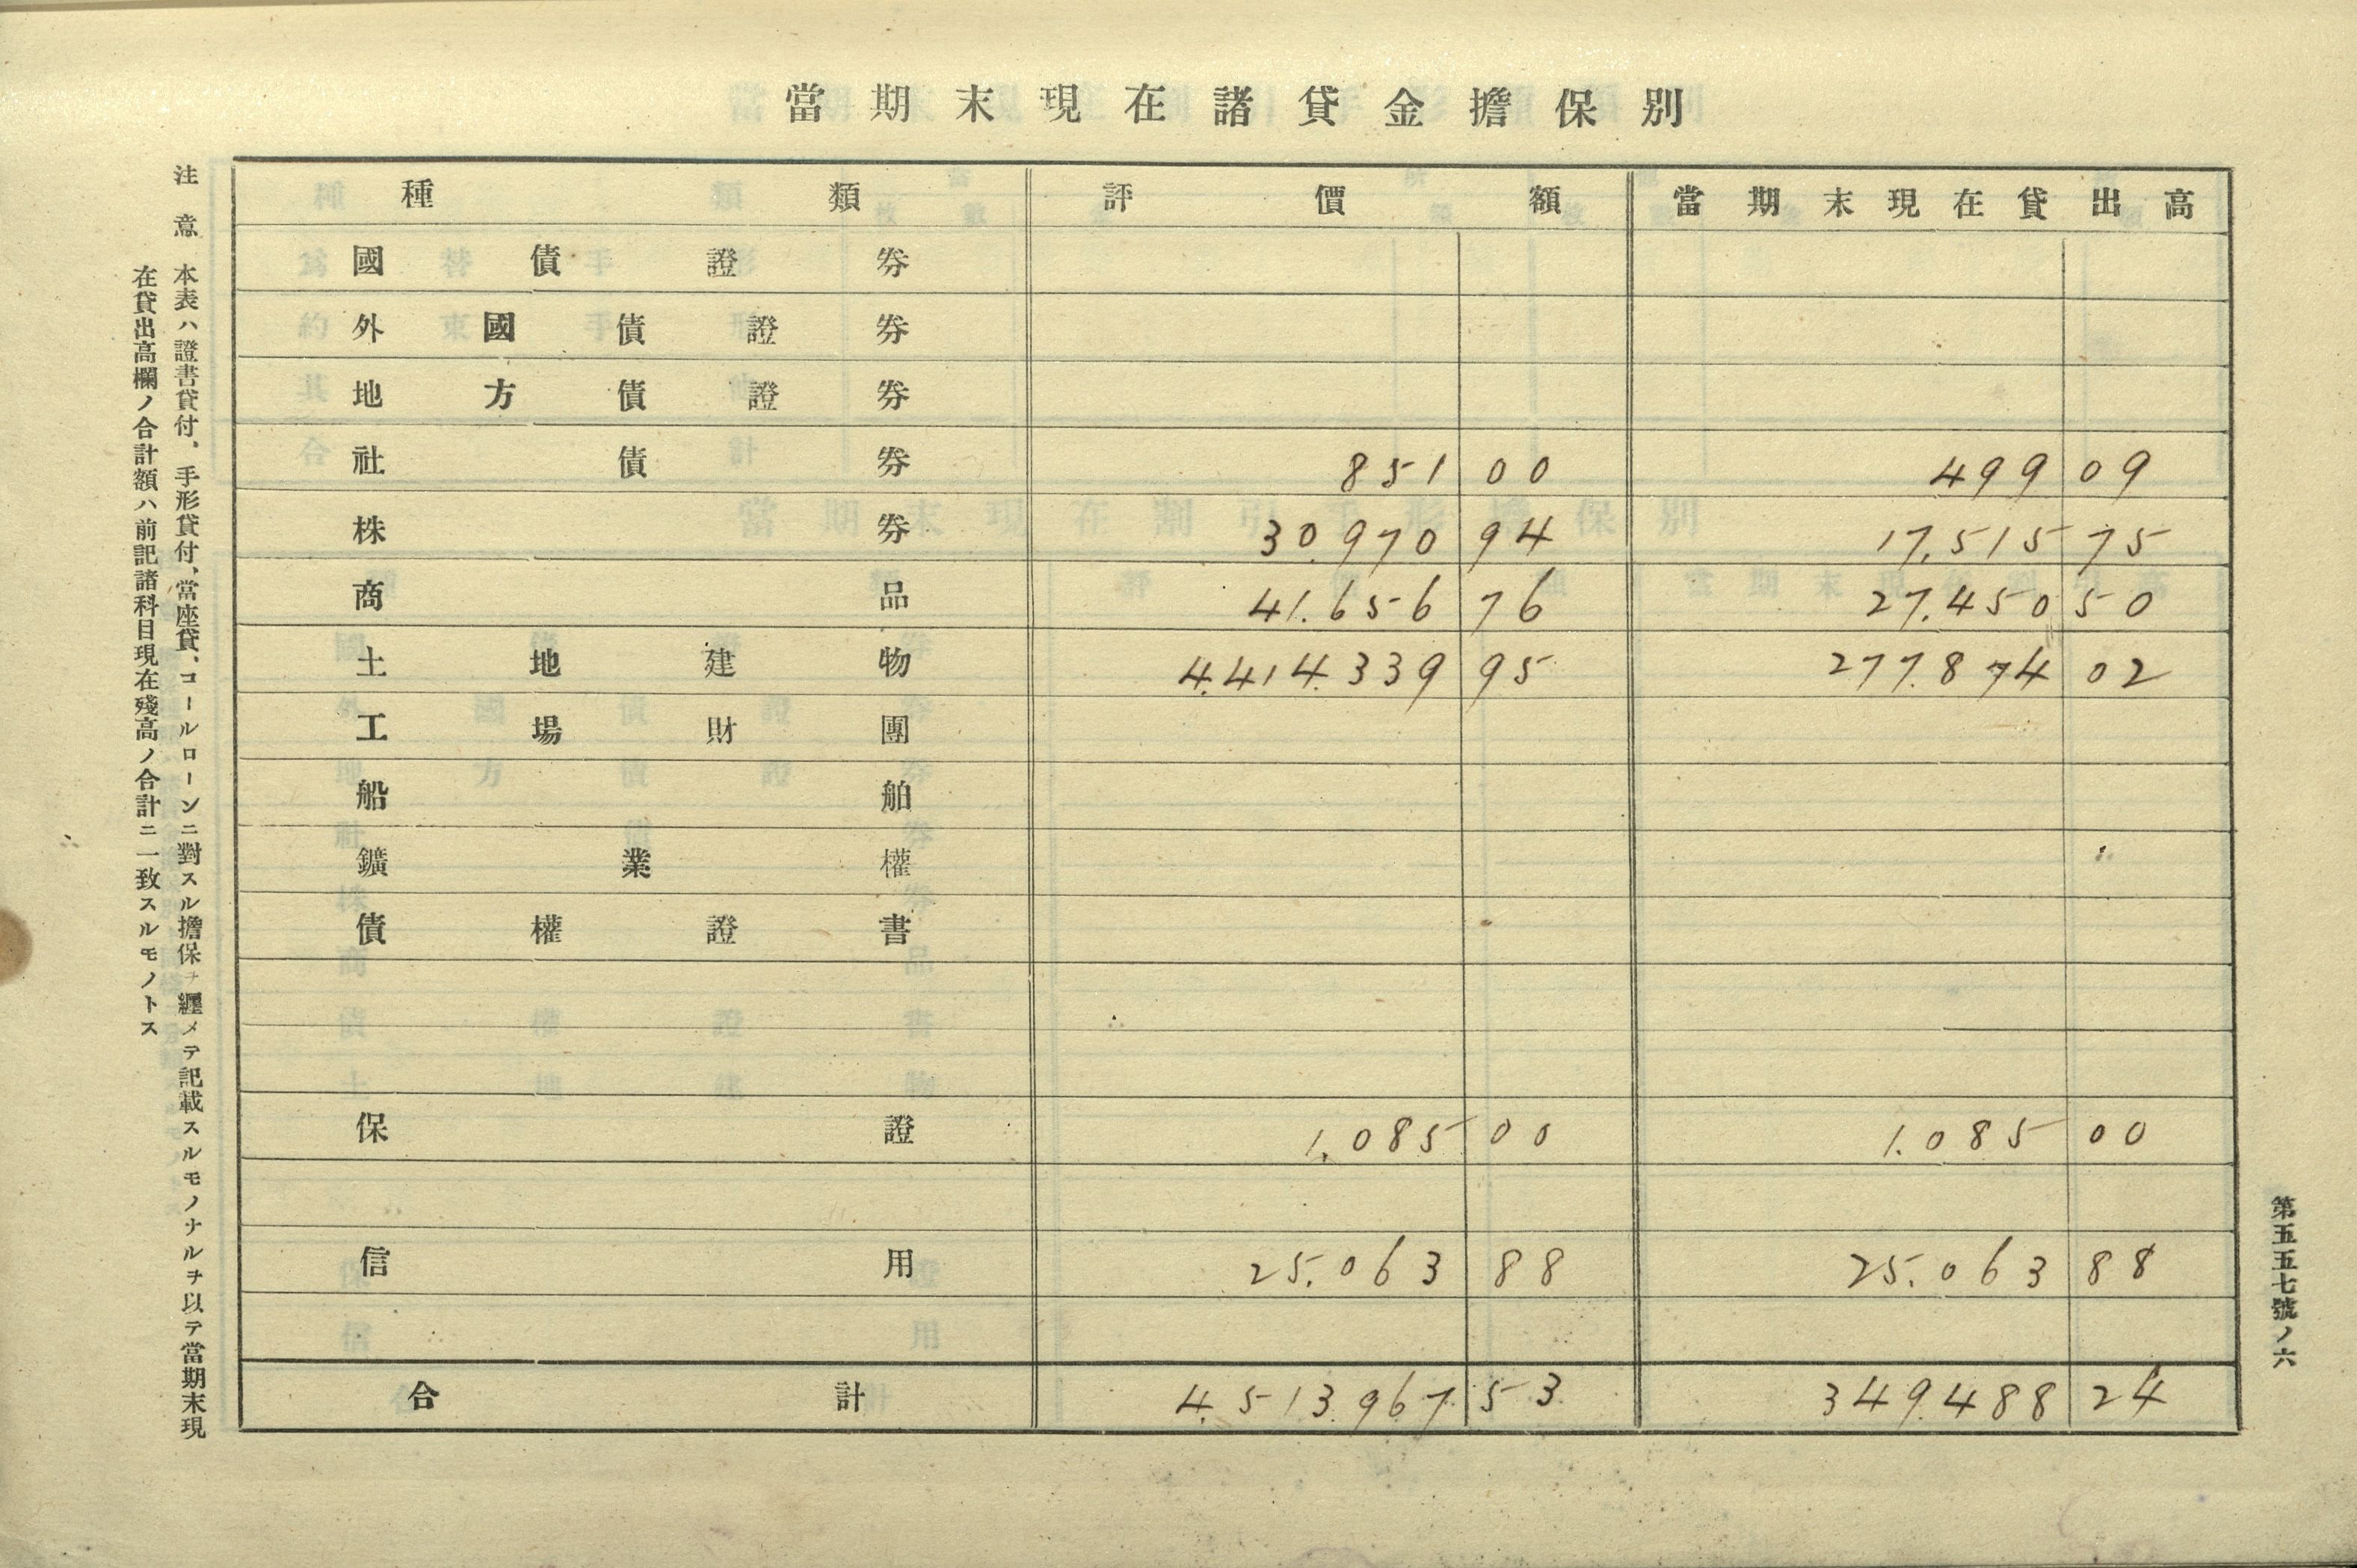 當期末現在諸貸金擔保別
種類 評價額 當期末現在貸出高
國債證券
外國債證券
地方債證券
社債券 851 00 499 09
株券 30.970 94 17.515 75
商品 41.656 76 27.450 50
土地建物 4.414.339 95 277.874 02
工場財團
船舶
鑛業權
債權證書
保證 1.085 00 1.085 00
信用 25.063 88 25.063 88
合計 4.513.967 53 349.488 24
第五五七號ノ六
注意 本表ハ證書貸付、手形貸付、當座貸、コールローンニ對スル擔保ヲ纒メテ記載スルモノナルヲ以テ當期末現
在貸出高欄ノ合計額ハ前記諸科目現在殘高ノ合計ニ一致スルモノトス